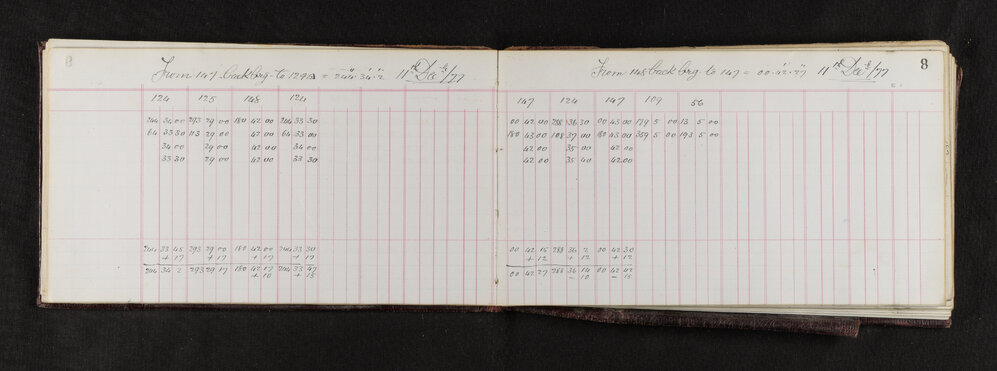 8
From 147 back brg. to 129a = 244.34.2 11th Decbr/77
124 125 148 124
244 34 00 293 29 00 180 42 00 244 33 30
64 33 30 113 29 00 42 00 64 33 00
34 00 29 00 42 00 34 00
33 30 29 00 42 00 33 30
244 33 45 293 29 00 180 42 00 244 33 30
+ 17 + 17 + 17 + 17
244 34 2 293 29 17 180 42 17 244 33 47
+ 10 + 15
8
From 148 back brg. to 147 = 00.42.27 11th Decbr/77
147 124 147 109 56
00 42 00 288 36 30 00 43 00 179 5 00 13 5 00
180 43 00 108 37 00 180 43 00 359 5 00 193 5 00
42 00 35 00 42 00
42 00 35 40 42 00
00 42 15 288 36 2 00 42 30
+ 12 + 12 + 12
00 42 27 288 36 14 00 42 42
- 10 - 15